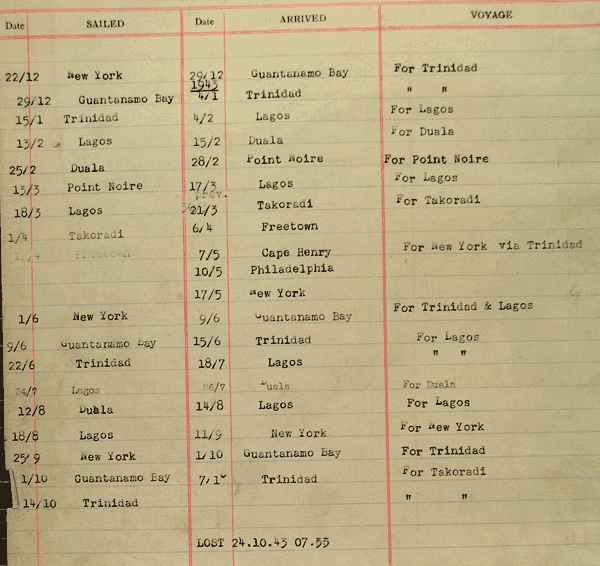 Date SAILED Date ARRIVED VOYAGE
22/12 New York 29/12 Guantanamo Bay For Trinidad
1943
29/12 Guantanamo Bay 4/1 Trinidad " "
15/1 Trinidad 4/2 Lagos For Lagos
13/2 Lagos 15/2 Duala For Duala
25/2 Duala 28/2 Point Noire For Point Noire
13/3 Point Noire 17/3 Lagos For Lagos
prev.
18/3 Lagos 21/3 Takoradi For Takoradi
1/4 Takoradi 6/4 Freetown
Freetown 7/5 Cape Henry For New York via Trinidad
10/5 Philadelphia
17/5 New York
1/6 New York 9/6 Guantanamo Bay For Trinidad & Lagos
9/6 Guantanamo Bay 15/6 Trinidad For Lagos
22/6 Trinidad 18/7 Lagos " "
24/7 Lagos 26/7 Duala For Duala
12/8 Duala 14/8 Lagos For Lagos
18/8 Lagos 11/9 New York For New York
25/9 New York 1/10 Guantanamo Bay For Trinidad
1/10 Guantanamo Bay Trinidad For Takoradi
14/10 Trinidad " "
LOST 24.10.43 07.55